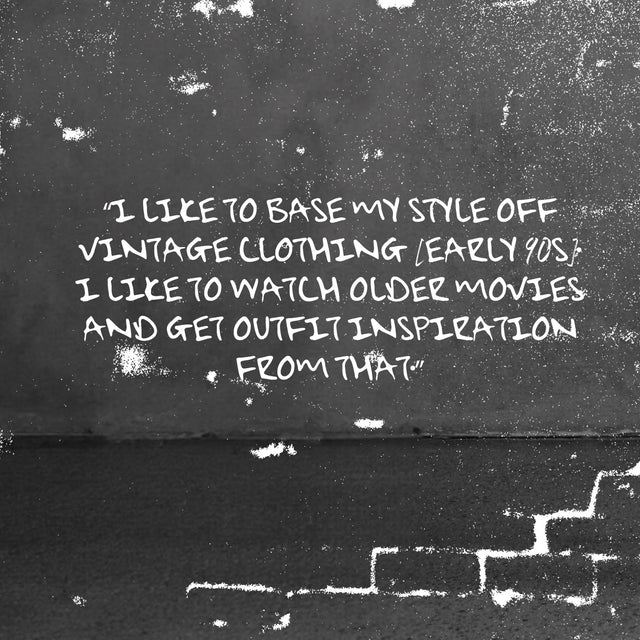 "I LIKE TO BASE MY STYLE OFF
VINTAGE CLOTHING [EARLY 90S].
I LIKE TO WATCH OLDER MOVIES
AND GET OUTFIT INSPIRATION
FROM THAT."